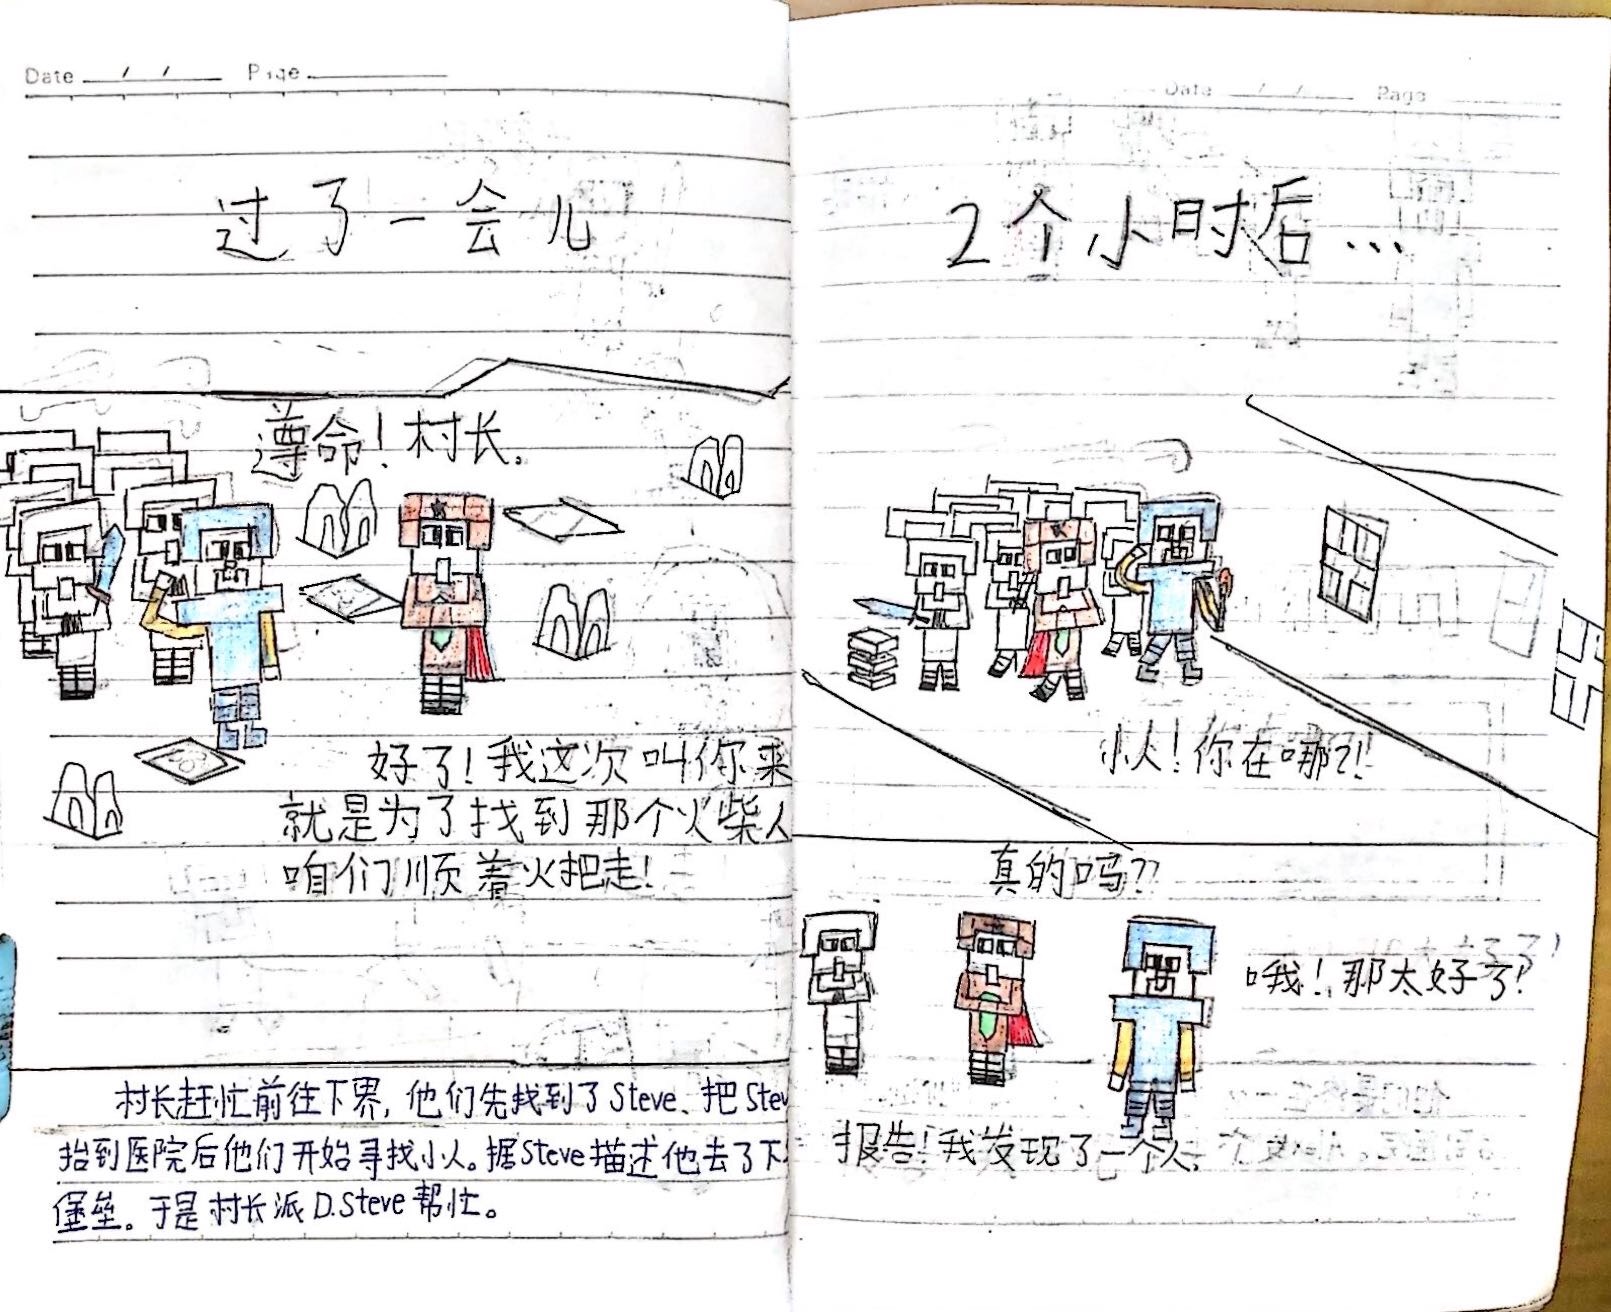 Date / / Page
过了一会儿
遵命！村长。
好了！我这次叫你来
就是为了找到那个火柴人
咱们顺着火把走！
村长赶忙前往下界，他们先找到了Steve、把Stev
抬到医院后他们开始寻找小人。据Steve描述他去了下
堡垒。于是村长派D.Steve帮忙。
Date / / Page
2个小时后…
小人！你在哪？！
真的吗？？
哦！那太好了！
报告！我发现了一个人、